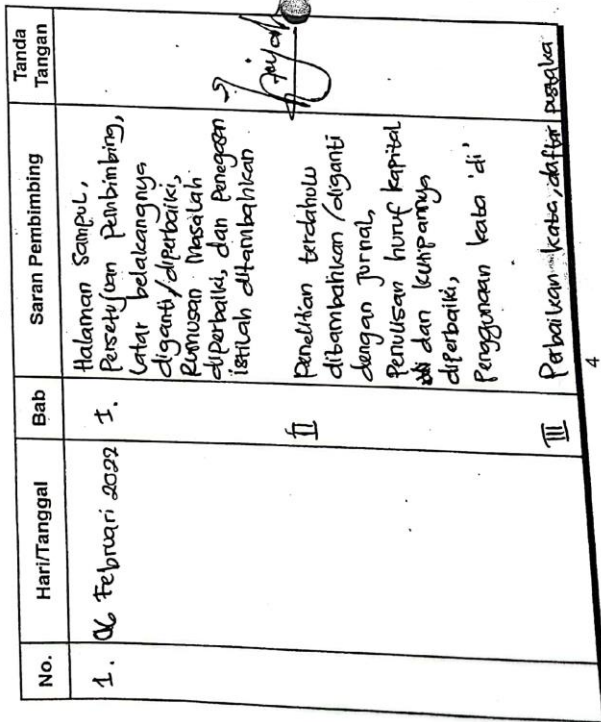 No. Hari/Tanggal Bab Saran Pembimbing Tanda Tangan
1. 06 Februari 2022 I. Halaman Sampul,
Persetujuan Pembimbing,
latar belakangnya
diganti/diperbaiki,
Rumusan Masalah
diperbaiki, dan Penegasan
istilah ditambahkan
II Penelitian terdahulu
ditambahkan/diganti
dengan Jurnal,
Penulisan huruf kapital
dan
diperbaiki,
Penggunaan kata 'di'
III Perbaikan kata, daftar pustaka
4